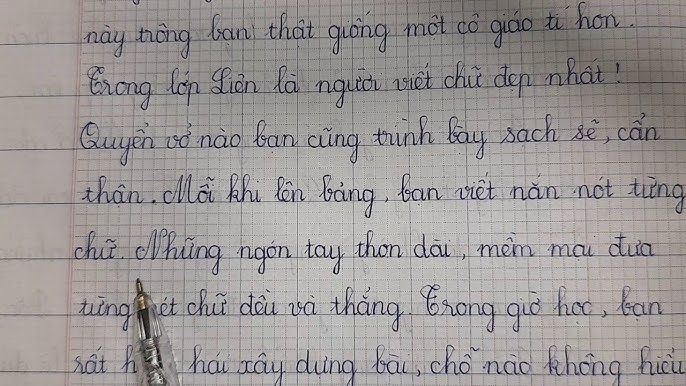 này trông bạn thật giống một cô giáo tí hon.
Trong lớp Liên là người viết chữ đẹp nhất!
Quyển vở nào bạn cũng trình bày sạch sẽ, cẩn
thận. Mỗi khi lên bảng, bạn viết nắn nót từng
chữ. Những ngón tay thon dài, mềm mại đưa
từng chữ đều và thẳng. Trong giờ học, bạn
rất hái xây dựng bài, chỗ nào không hiểu